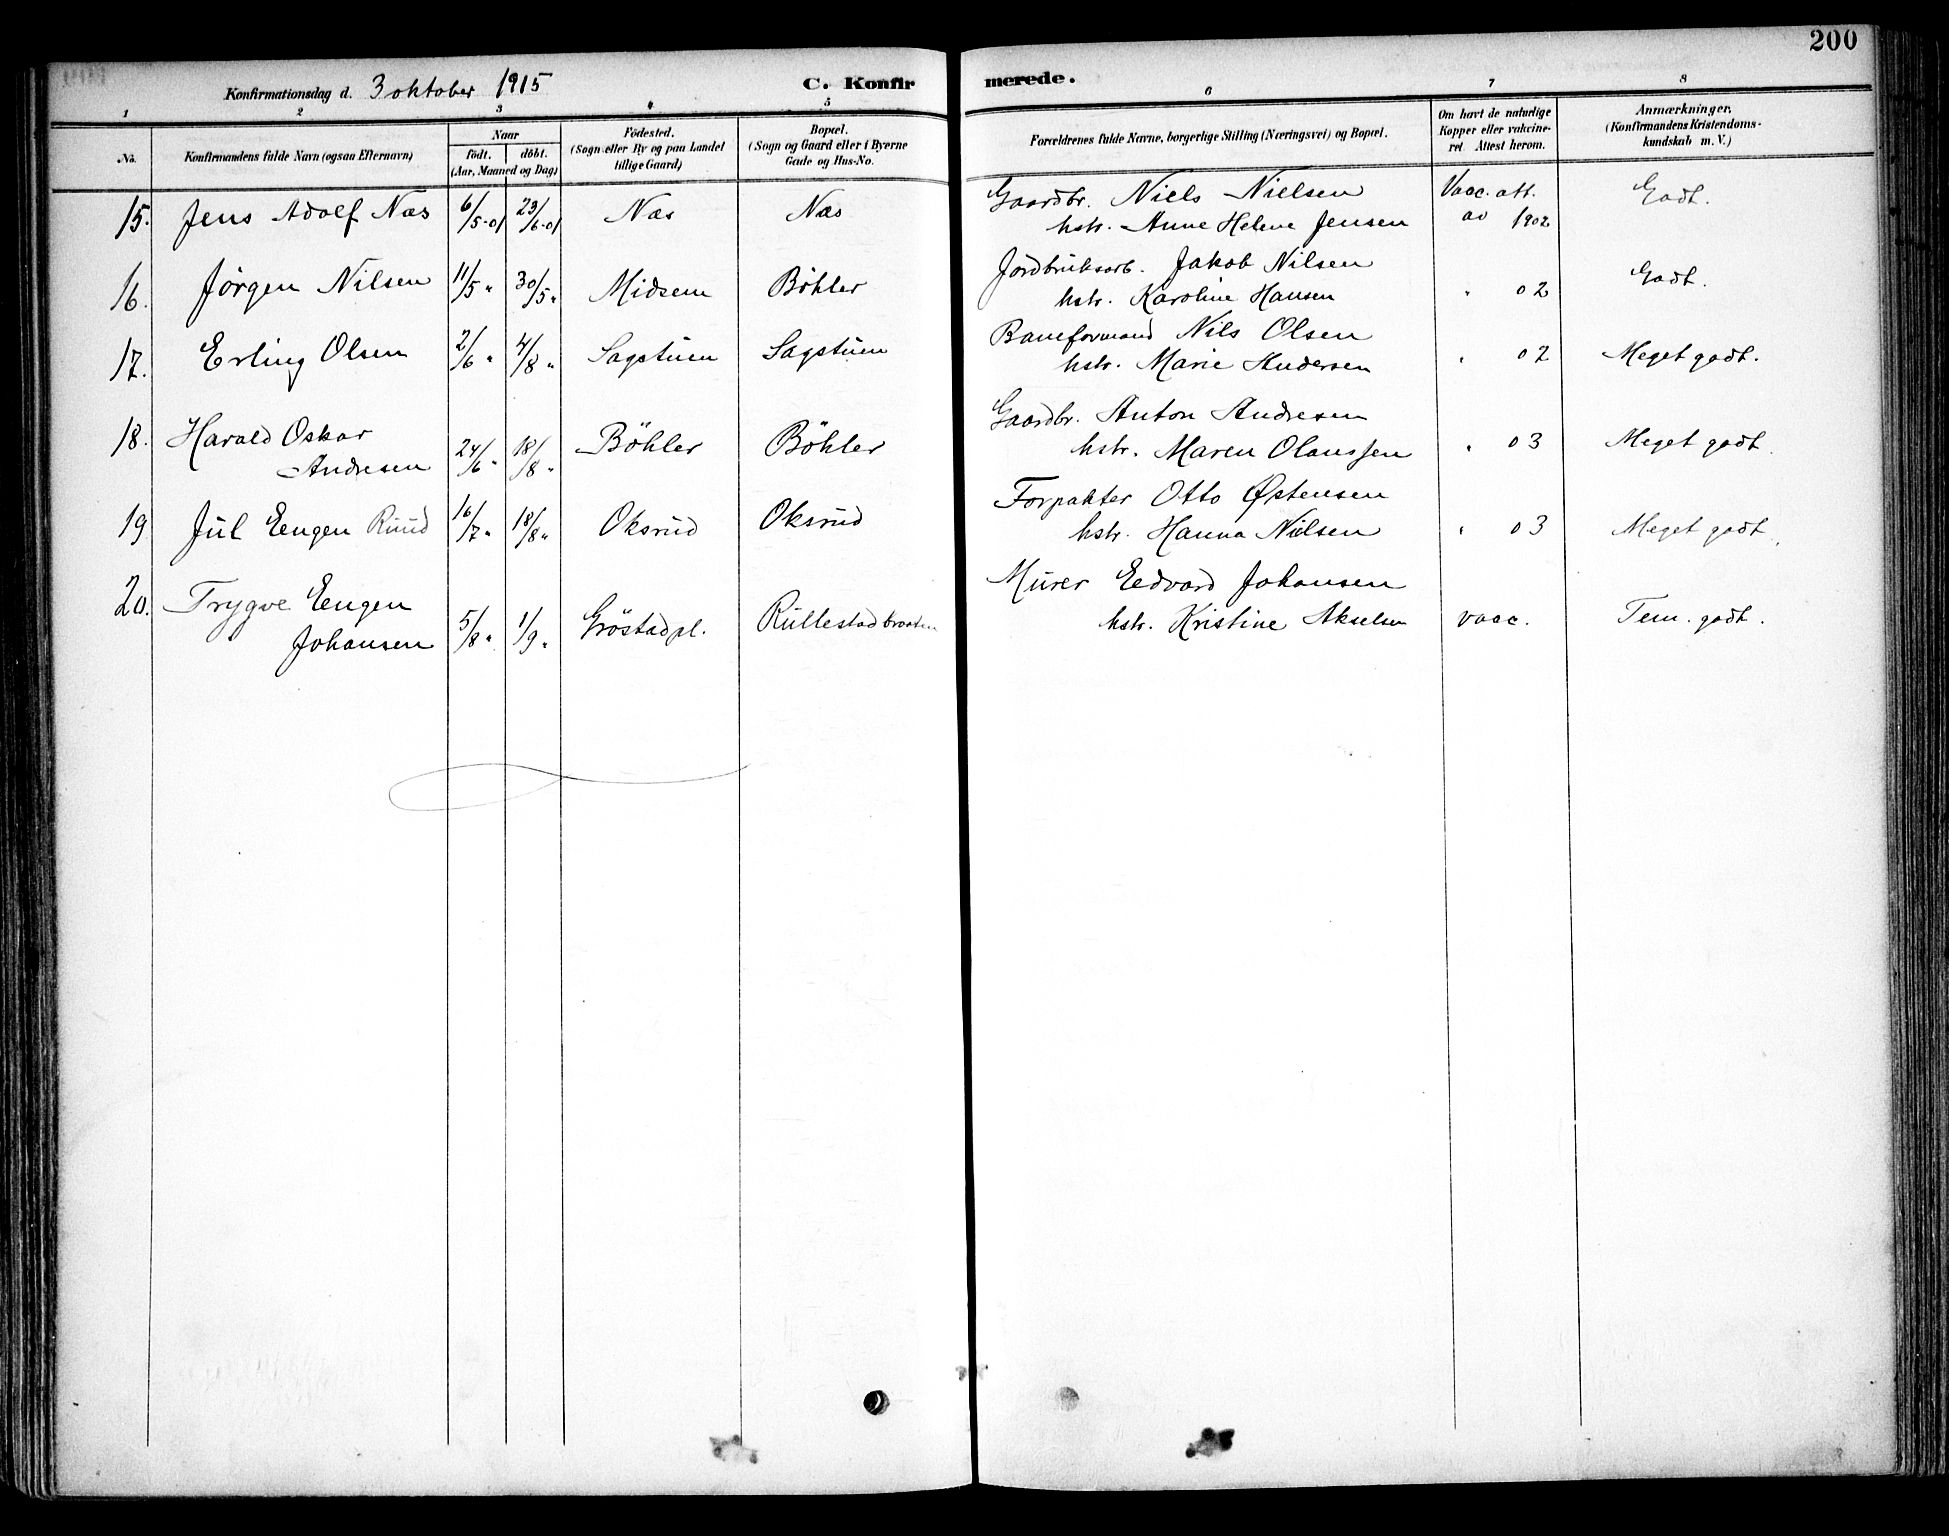 200
Konfirmationsdag d. 3 oktober 1915
C. Konfir merede.
1 2 3 4 5 6 7 8
No.
Konfirmandens fulde Navn (ogsaa Efternavn)
Naar
födt. döbt.
(Aar, Maaned og Dag)
Födested.
(Sogn eller By og paa Landet
tillige Gaard)
Bopæl.
(Sogn og Gaard eller i Byerne
Gade og Hus-No.
Forældrenes fulde Navne, borgerlige Stilling (Næringsvei) og Bopæl.
Om havt de naturlige
Kopper eller vakcine-
ret. Attest herom.
Anmærkninger,
(Konfirmandens Kristendoms-
kundskab m. V.)
15. Jens Adolf Næs 6/5-01 23/6-01 Næs Næs Gaardbr. Niels Nielsen Vacc. att. Godt.
hstr. Anne Helene Jensen av 1902
16. Jörgen Nilsen 11/5 " 30/5 " Midsem Böhler Jordbruksarb. Jakob Nilsen Godt.
hstr. Karoline Hansen " 02
17. Erling Olsen 2/6 " 4/8 " Sagstuen Sagstuen Baneformand Nils Olsen
hstr. Marie Andersen " 02 Meget godt.
18. Harald Oskar Gaardbr. Anton Andresen
Andresen 24/6 " 18/8 " Böhler Böhler hstr. Maren Olaussen " 03 Meget godt.
19 Jul Eugen Ruud 16/7 " 18/8 " Oksrud Oksrud Forpakter Otto Østensen
hstr. Hanna Nielsen " 03 Meget godt.
20. Trygve Eugen Murer Edvard Johansen
Johansen 5/8 " 1/9 " Gröstadpl. Rullestadbraaten hstr. Kristine Akselsen vacc. Tem. godt.